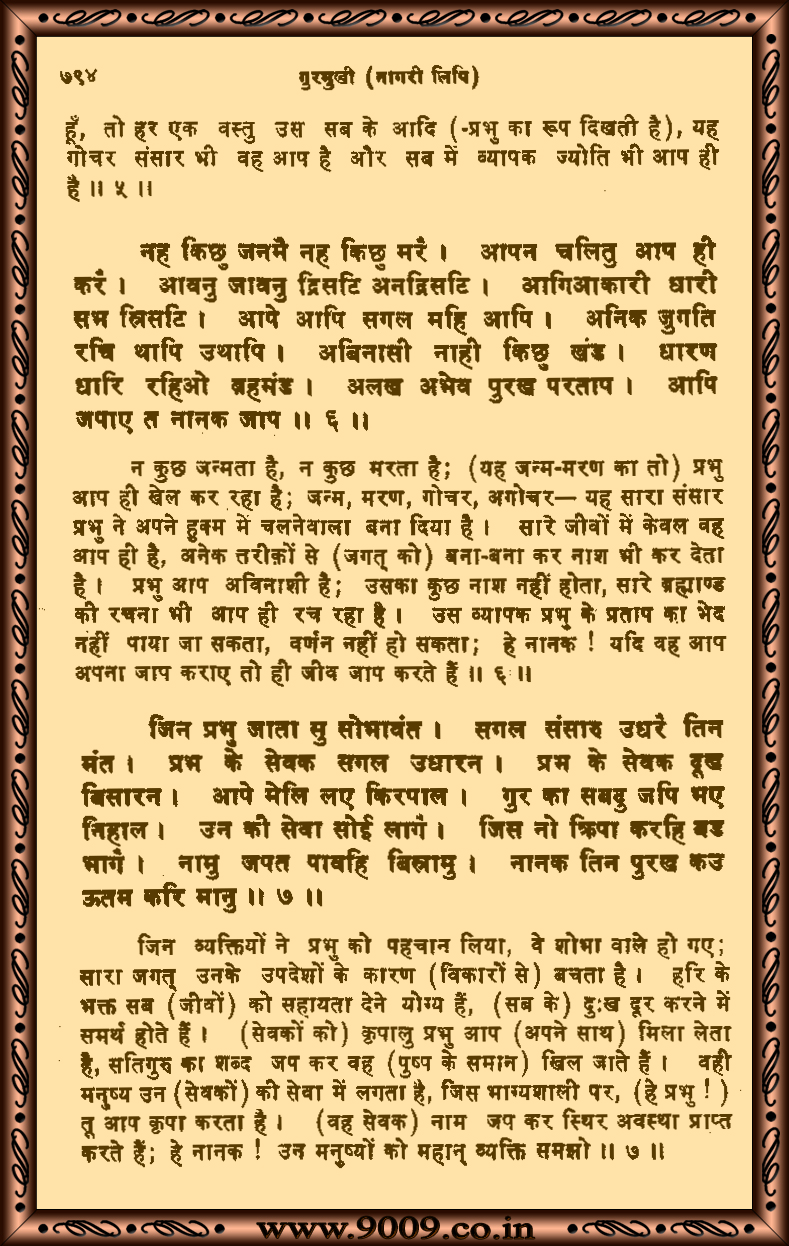 ७९४
गुरमुखी (नागरी लिपि)
हूँ, तो हर एक वस्तु उस सब के आदि (-प्रभु का रूप दिखती है), यह
गोचर संसार भी वह आप है और सब में व्यापक ज्योति भी आप ही
है ॥ ५ ॥
नह किछु जनमै नह किछु मरै । आपन चलितु आप ही
करै । आवनु जावनु द्रिसटि अनद्रिसटि । आगिआकारी धारी
सभ स्रिसटि । आपे आपि सगल महि आपि । अनिक जुगति
रचि थापि उथापि । अबिनासी नाही किछु खंड । धारण
धारि रहिओ ब्रहमंड । अलख अभेव पुरख परताप । आपि
जपाए त नानक जाप ॥ ६ ॥
न कुछ जन्मता है, न कुछ मरता है; (यह जन्म-मरण का तो) प्रभु
आप ही खेल कर रहा है; जन्म, मरण, गोचर, अगोचर— यह सारा संसार
प्रभु ने अपने हुक्म में चलनेवाला बना दिया है । सारे जीवों में केवल वह
आप ही है, अनेक तरीक़ों से (जगत् को) बना-बना कर नाश भी कर देता
है । प्रभु आप अविनाशी है; उसका कुछ नाश नहीं होता, सारे ब्रह्माण्ड
की रचना भी आप ही रच रहा है । उस व्यापक प्रभु के प्रताप का भेद
नहीं पाया जा सकता, वर्णन नहीं हो सकता; हे नानक ! यदि वह आप
अपना जाप कराए तो ही जीव जाप करते हैं ॥ ६ ॥
जिन प्रभु जाता सु सोभावंत । सगल संसारु उधरै तिन
मंत । प्रभ के सेवक सगल उधारन । प्रभ के सेवक दूख
बिसारन । आपे मेलि लए किरपाल । गुर का सबदु जपि भए
निहाल । उन की सेवा सोई लागै । जिस नो क्रिपा करहि बड
भागै । नामु जपत पावहि बिस्रामु । नानक तिन पुरख कउ
ऊतम करि मानु ॥ ७ ॥
जिन व्यक्तियों ने प्रभु को पहचान लिया, वे शोभा वाले हो गए;
सारा जगत् उनके उपदेशों के कारण (विकारों से) बचता है । हरि के
भक्त सब (जीवों) को सहायता देने योग्य हैं, (सब के) दुःख दूर करने में
समर्थ होते हैं । (सेवकों को) कृपालु प्रभु आप (अपने साथ) मिला लेता
है, सतिगुरु का शब्द जप कर वह (पुष्प के समान) खिल जाते हैं । वही
मनुष्य उन (सेवकों) की सेवा में लगता है, जिस भाग्यशाली पर, (हे प्रभु ! )
तू आप कृपा करता है । (वह सेवक) नाम जप कर स्थिर अवस्था प्राप्त
करते हैं; हे नानक ! उन मनुष्यों को महान् व्यक्ति समझो ॥ ७ ॥
www.9009.co.in